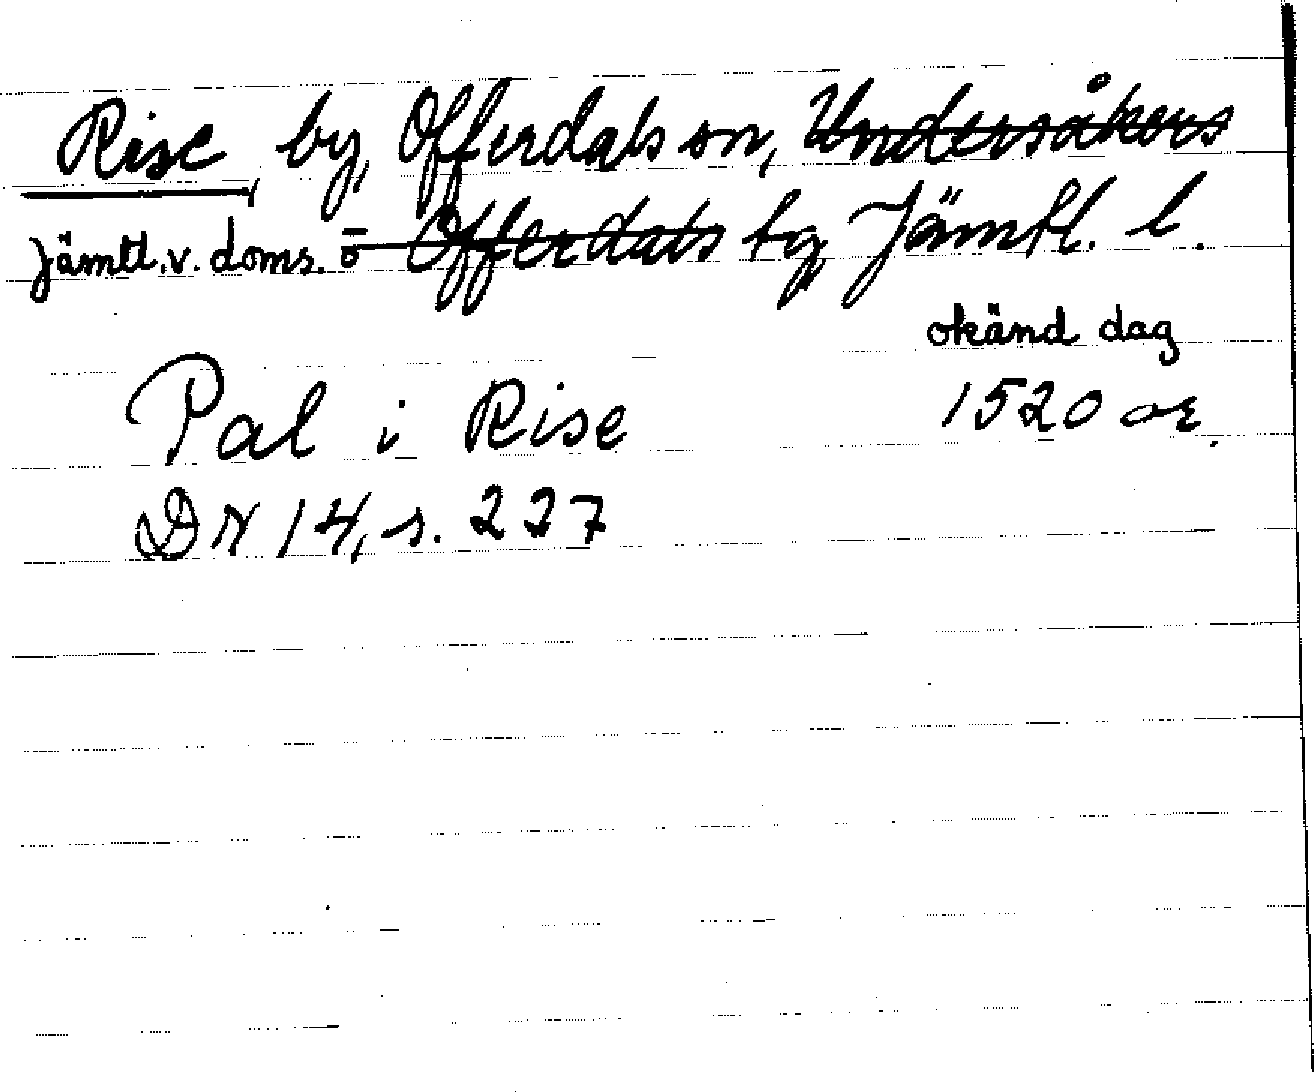 Rise, by, Offerdals sn, Undersåkers
Jämtl. v. doms. o Offerdals tg Jämtl. l.
okänd dag
Pal i Rise 1520 or.
DN 14, s. 227